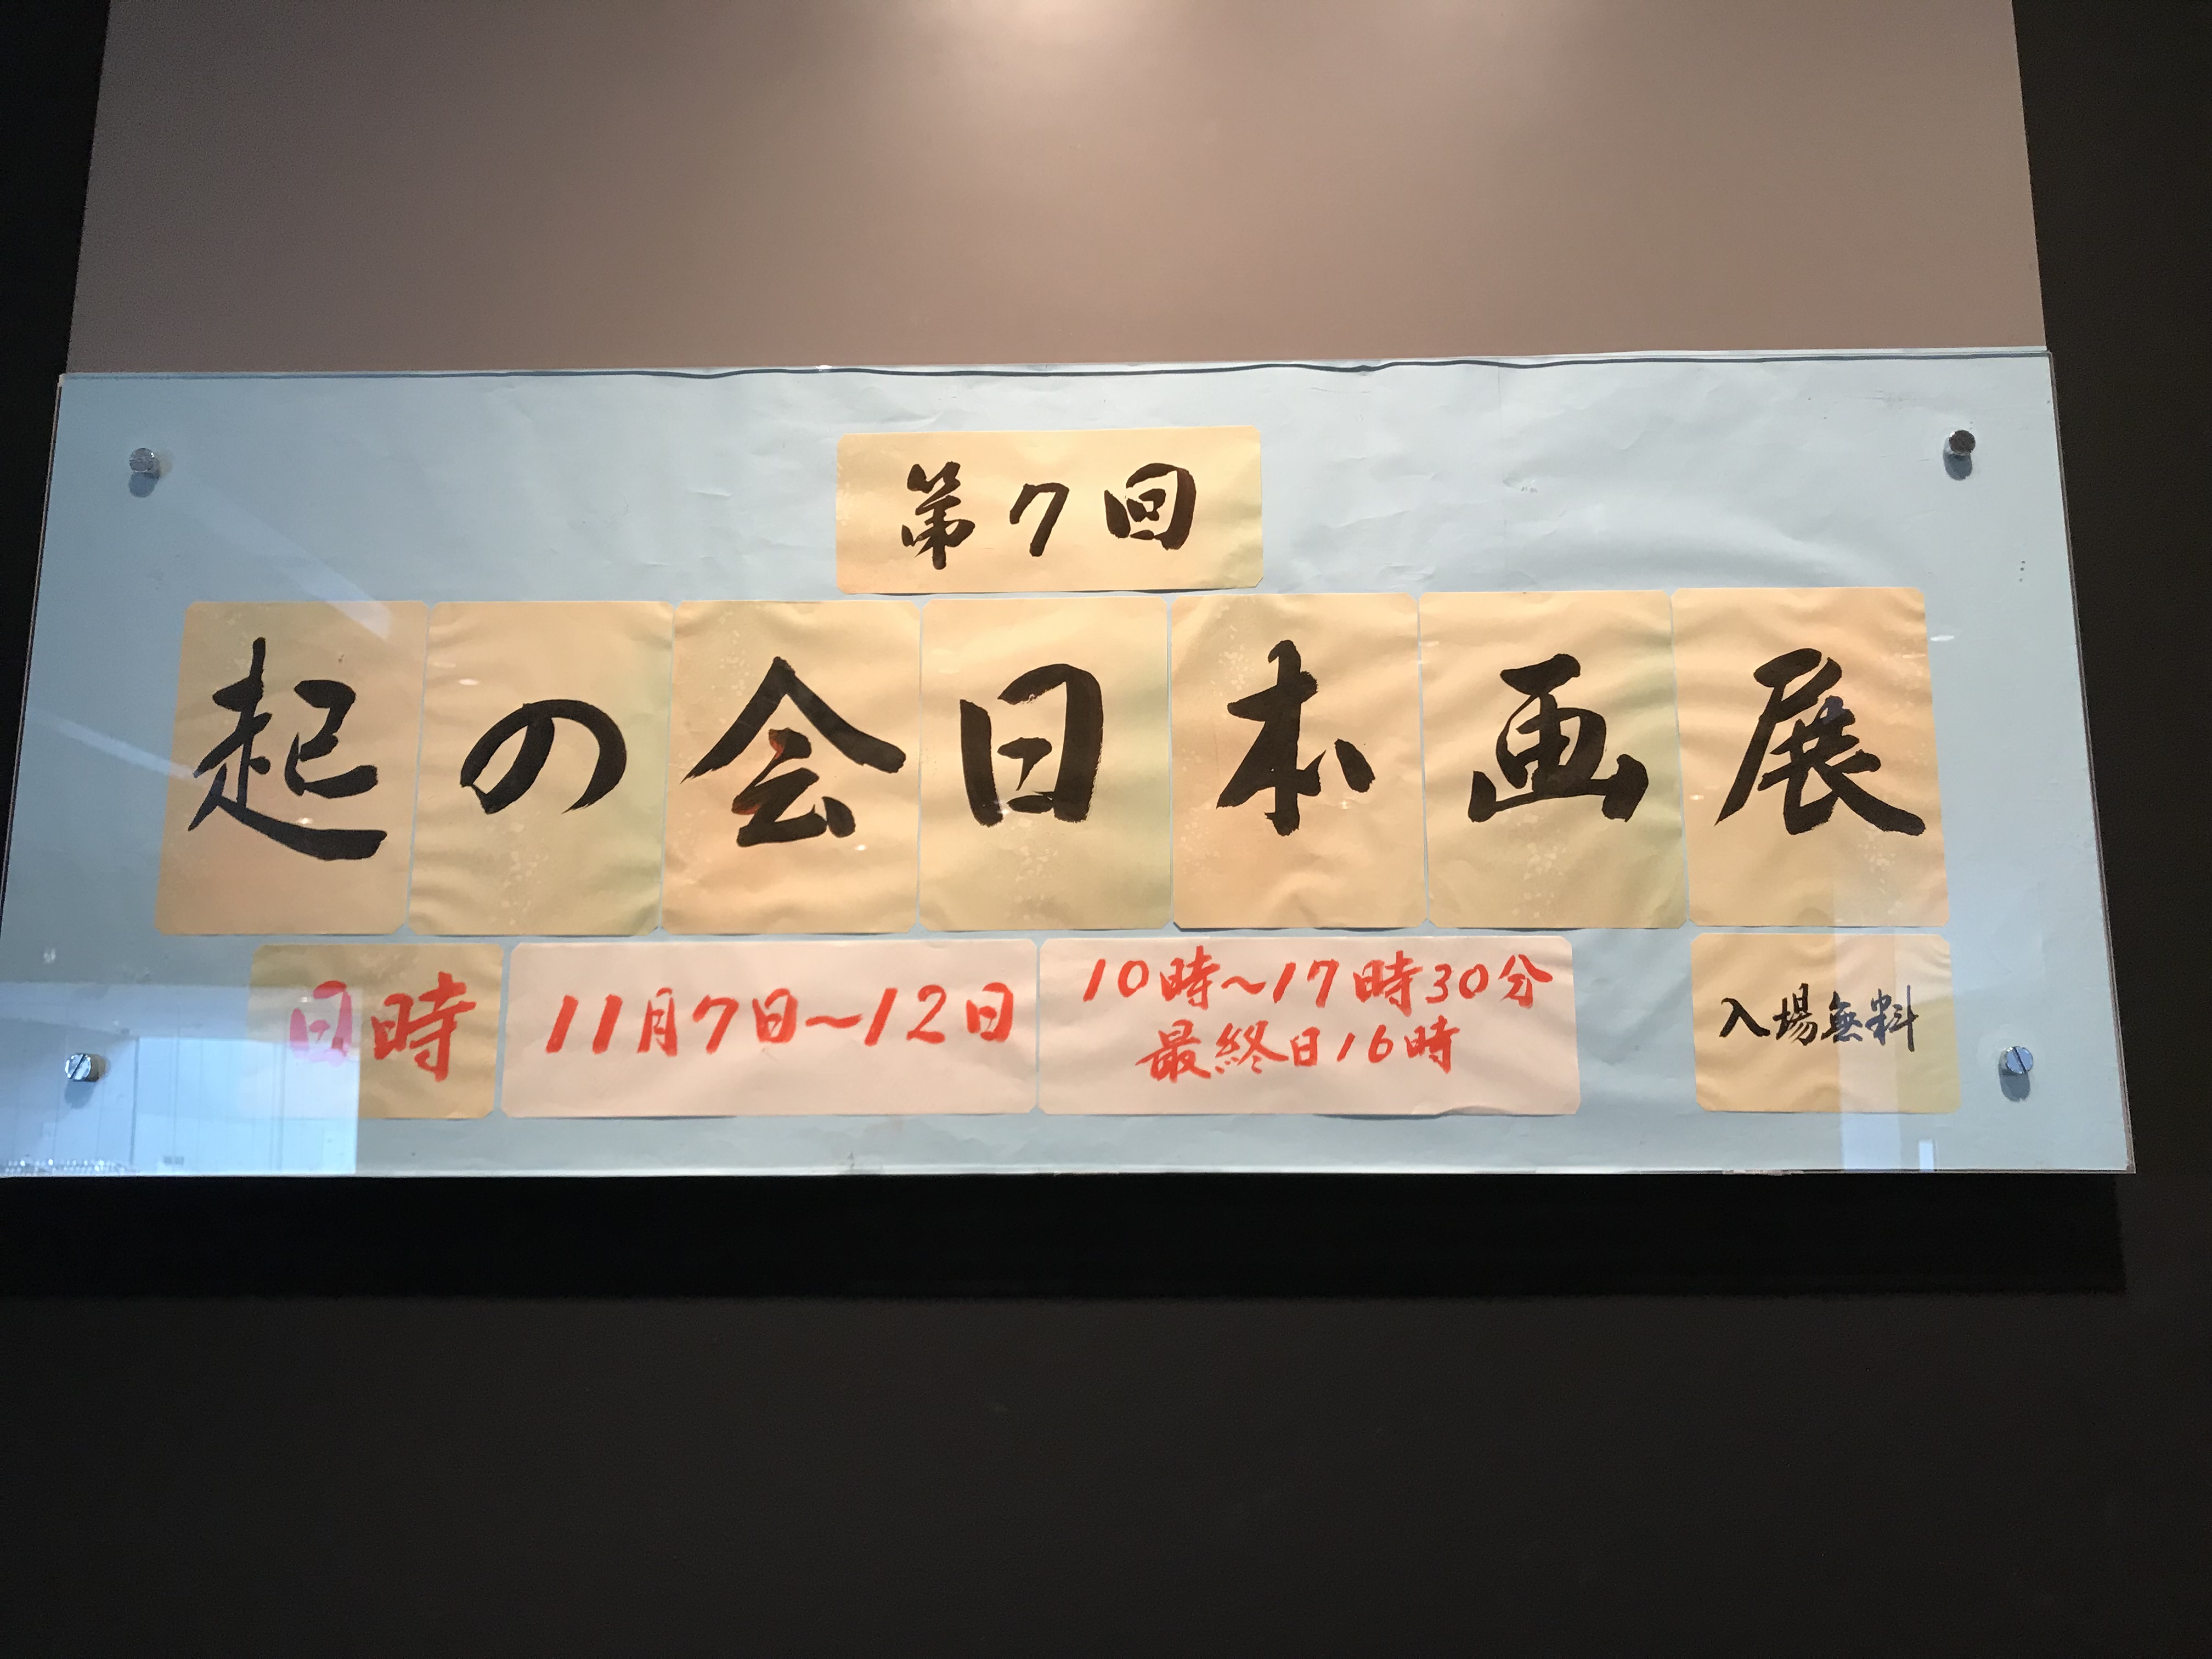 第7回
起の会日本画展
日時 11月7日～12日 10時～17時30分
最終日16時
入場無料